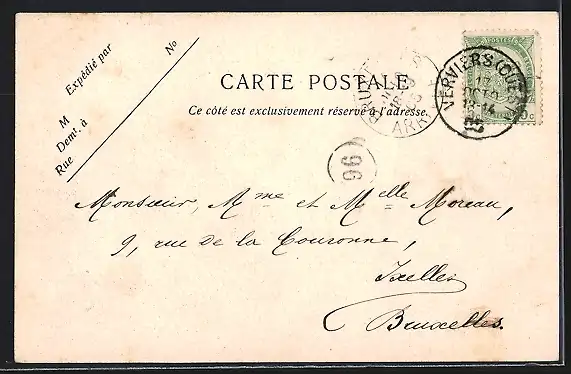 Expédié par
No
M
Demt. à
Rue
CARTE POSTALE
Ce côté est exclusivement réservé à l'adresse.
POSTES
VERVIERS (OUEST)
17
OCTO
13-14
05
ARRI
96
Monsieur, Mme et Melle Moreau,
9, rue de la Couronne,
Ixelles
Bruxelles.